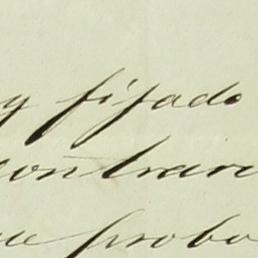 y fijado
contrari
que proba